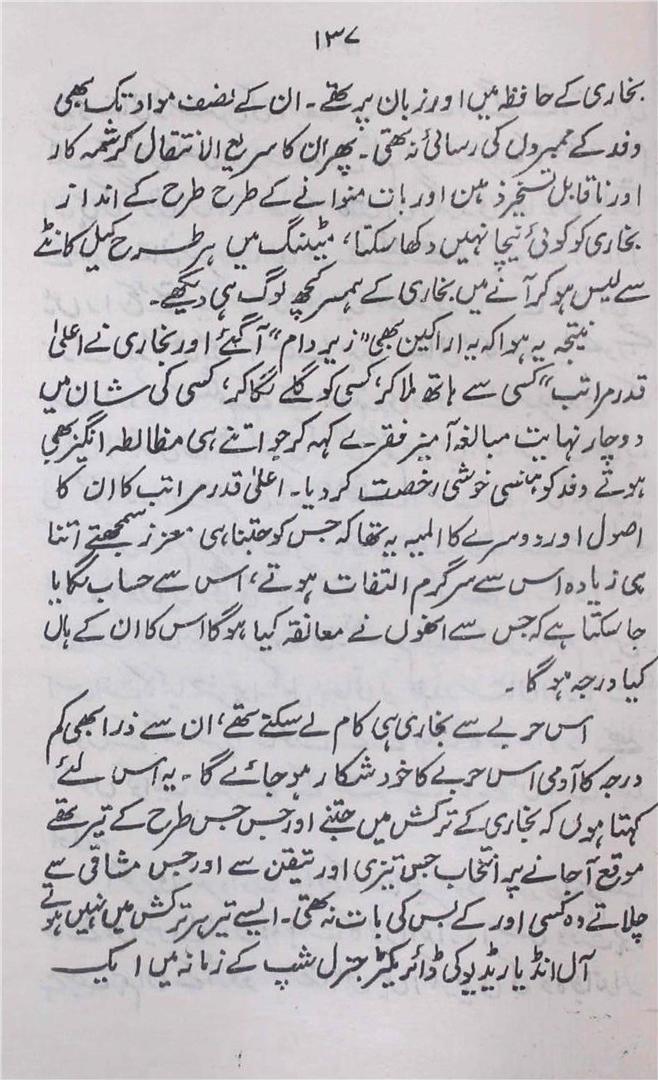 ۱۳۷
بخاری کے حافظہ میں اور زبان پر تھے۔ ان کے نصف مواد تک بھی
وفد کے ممبروں کی رسائی نہ تھی۔ پھر ان کا سریع الانتقال کرشمہ کار
اور ناقابل تسخیر ذہین اور بات منوانے کے طرح طرح کے انداز
بخاری کو کوئی نیچا نہیں دکھا سکتا، میٹینگ میں ہر طرح کیل کانٹے
سے لیس ہو کر آنے میں بخاری کے ہمسر کچھ لوگ ہی دیکھے۔
نیتجہ یہ ہوا کہ یہ اراکین بھی "زیر دام" آ گئے اور بخاری نے اعلیٰ
قدر مراتب" کسی سے ہاتھ ملا کر، کسی کو گلے لگا کر، کسی کی شان میں
دوچار نہایت مبالغہ آمیز فقرے کہہ کر جو اتنے ہی مغالطہ انگیز بھی
ہوتے وفد کو ہنسی خوشی رخصت کر دیا۔ اعلیٰ قدر مراتب کا ان کا
اصول اور دوسرے کا المیہ یہ تھا کہ جس کو جتنا ہی عزیز سمجھتے اتنا
ہی زیادہ اس سے سرگرم التفات ہوتے، اس سے حساب لگایا
جا سکتا ہے کہ جس سے انھوں نے معانقہ کیا ہوگا اس کا ان کے ہاں
کیا درجہ ہو گا۔
اس حربے سے بخاری ہی کام لے سکتے تھے، ان سے ذرا بھی کم
درجہ کا آدمی اس حربے کا خود شکار ہو جائے گا۔ یہ اس لئے
کہتا ہوں کہ بخاری کے ترکش میں جتنے اور جس جس طرح کے تیر تھے
موقع آ جانے پر انتخاب جس تیزی اور تیقن سے اور جس مشاقی سے
چلاتے وہ کسی اور کے بس کی بات نہ تھی۔ ایسے تیر ہر ترکش میں نہیں ہوتے
آل انڈیا ریڈیو کی ڈائریکٹر جنرل شپ کے زمانہ میں ایک